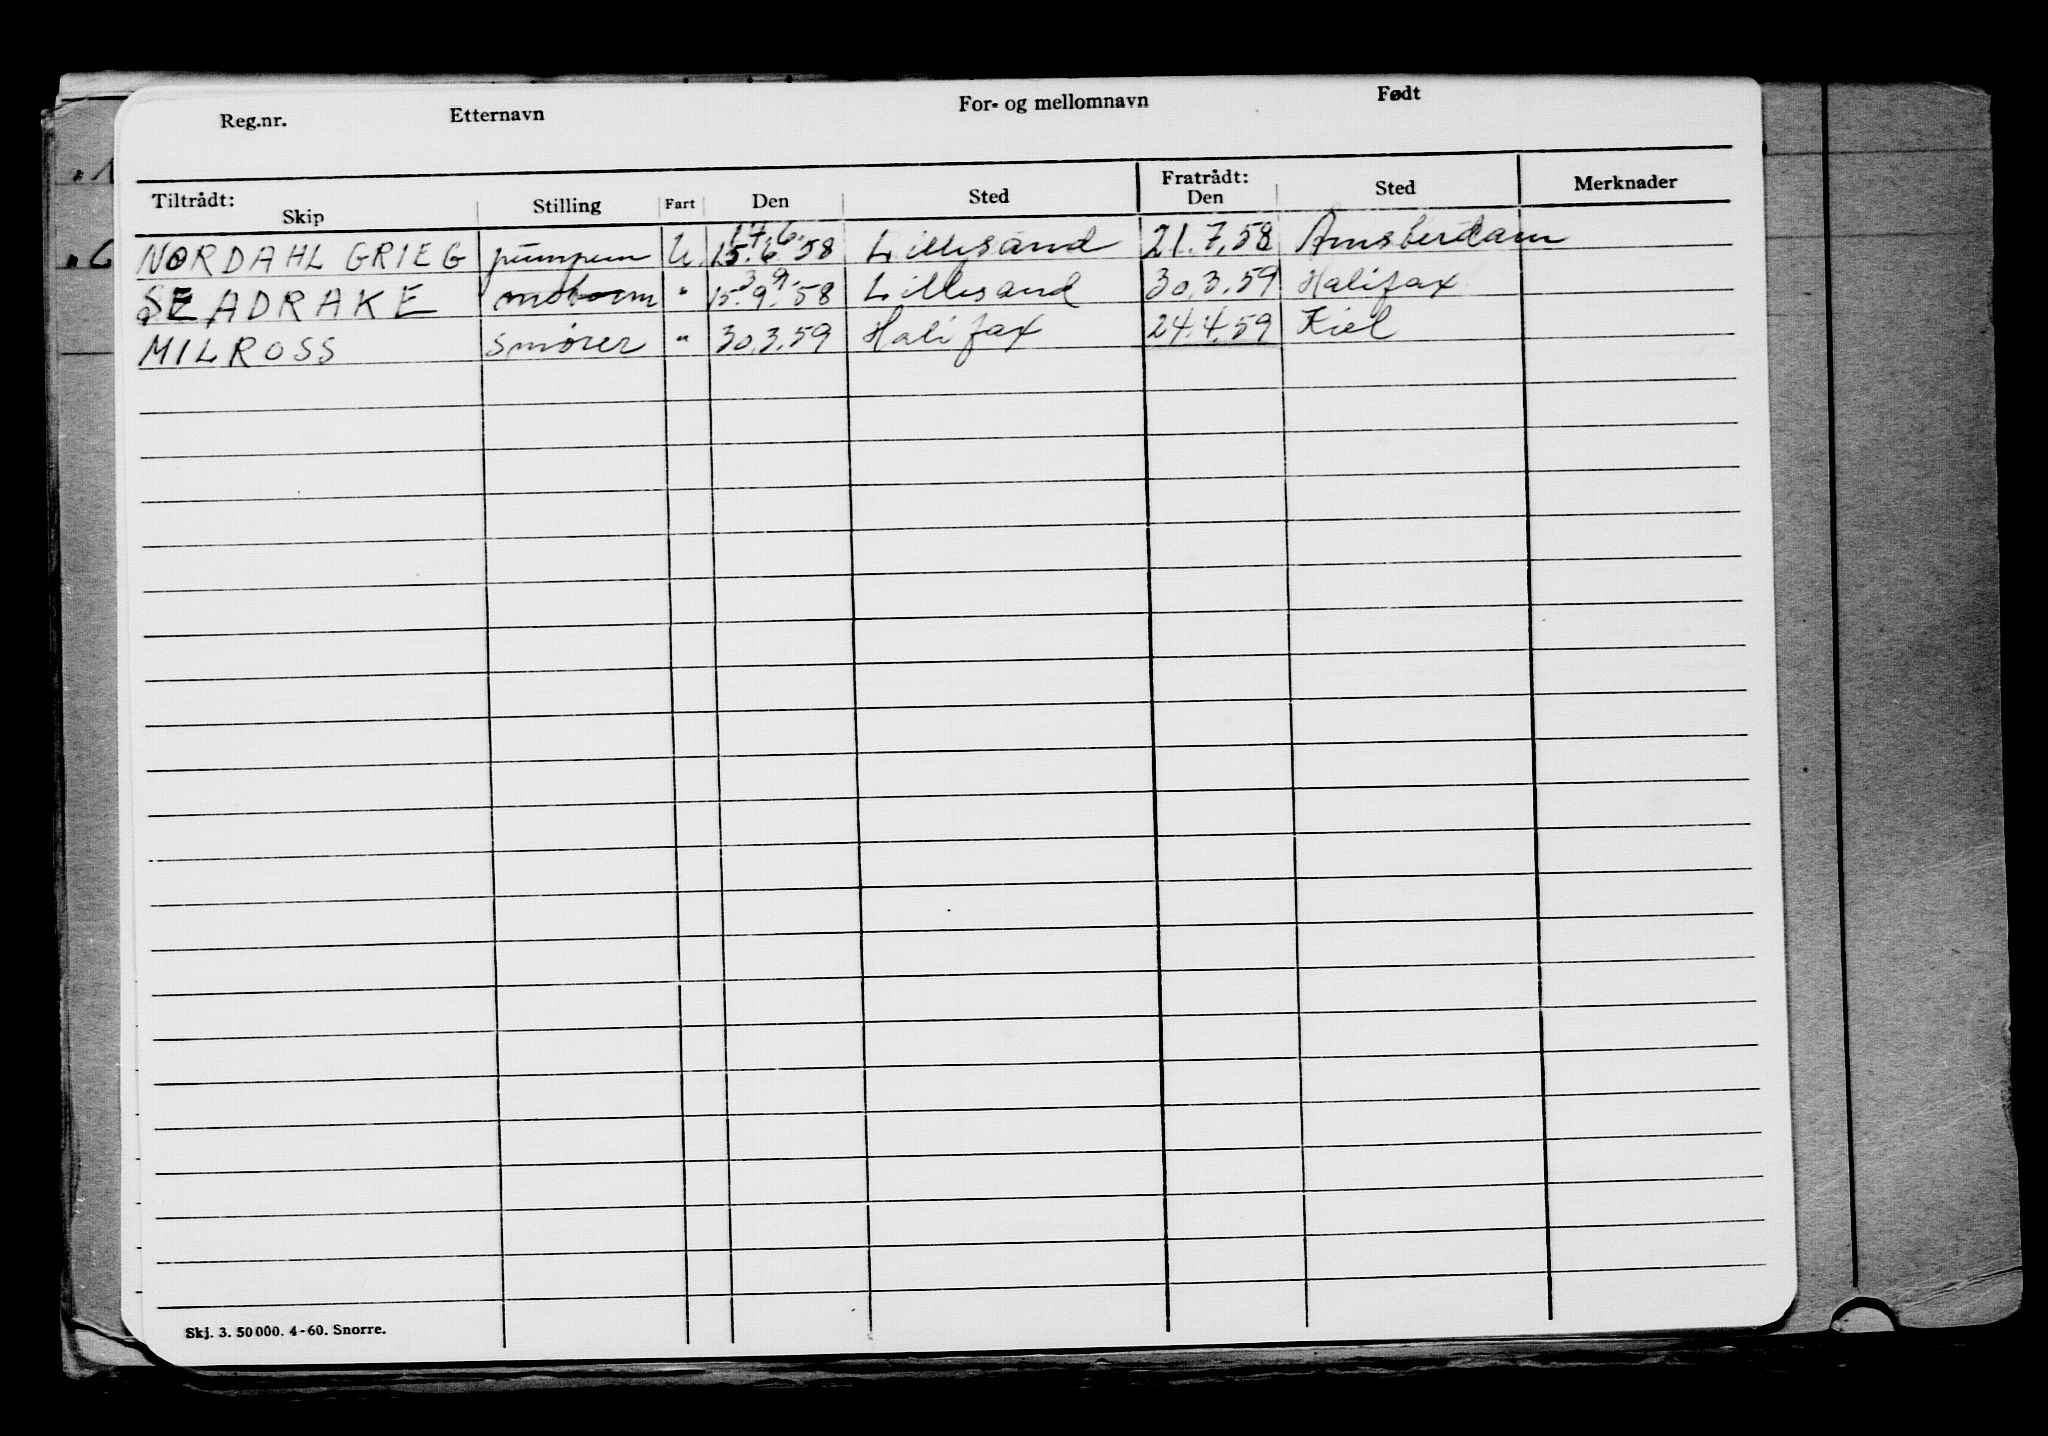 Reg.nr. Etternavn For- og mellomnavn Født
Tiltrådt: Fratrådt:
Skip Stilling Fart Den Sted Den Sted Merknader
14.6.
NORDAHL GRIEG pumpem U 15.6.58 Lillesand 21.7.58 Amsterdam
3 9
SEADRAKE motorm " 15.9.58 Lillesand 30.3.59 Halifax
MILROSS Smører " 30.3.59 Halifax 24.4.59 Kiel
Skj. 3. 50 000. 4-60. Snorre.